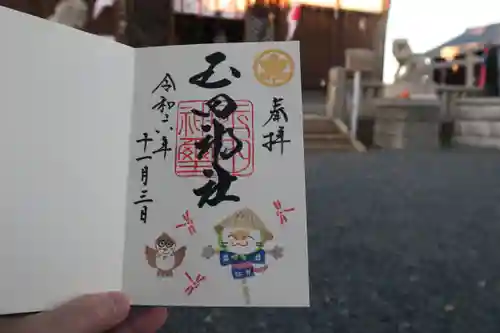 奉拝
玉田神社
令和六年
十一月三日